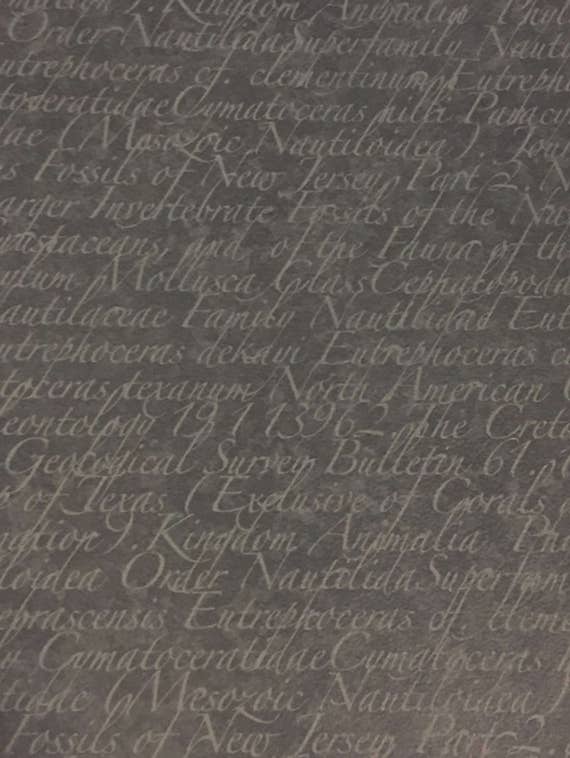 Kingdom Animalia
Order NautilidaSuperfamily
utrephoceras cf. clementinum Eutreph
toceratidaeCymatoceras hilli Paracy
dae (Mesozoic Nautiloidea). Jou
s Fossils of New Jersey, Part 2. N
arger Invertebrate Fossils of the
rustaceans, and of the Fauna of th
Mollusca Class Cephalopoda
autilaceae Family Nautilidae Eut
utrephoceras dekayi Eutrephoceras
texanum North American
eontology 19 1 1396 2 The Creta
Geological Survey Bulletin 61.
of Texas (Exclusive of Corals
Kingdom Animalia Ph
loidea Order NautilidaSuperfam
Eutrephoceras cf. cleme
CymatoceratidaeCymatoceras
tidae (Mesozoic Nautiloidea)
Fossils of New Jersey, Part 2.